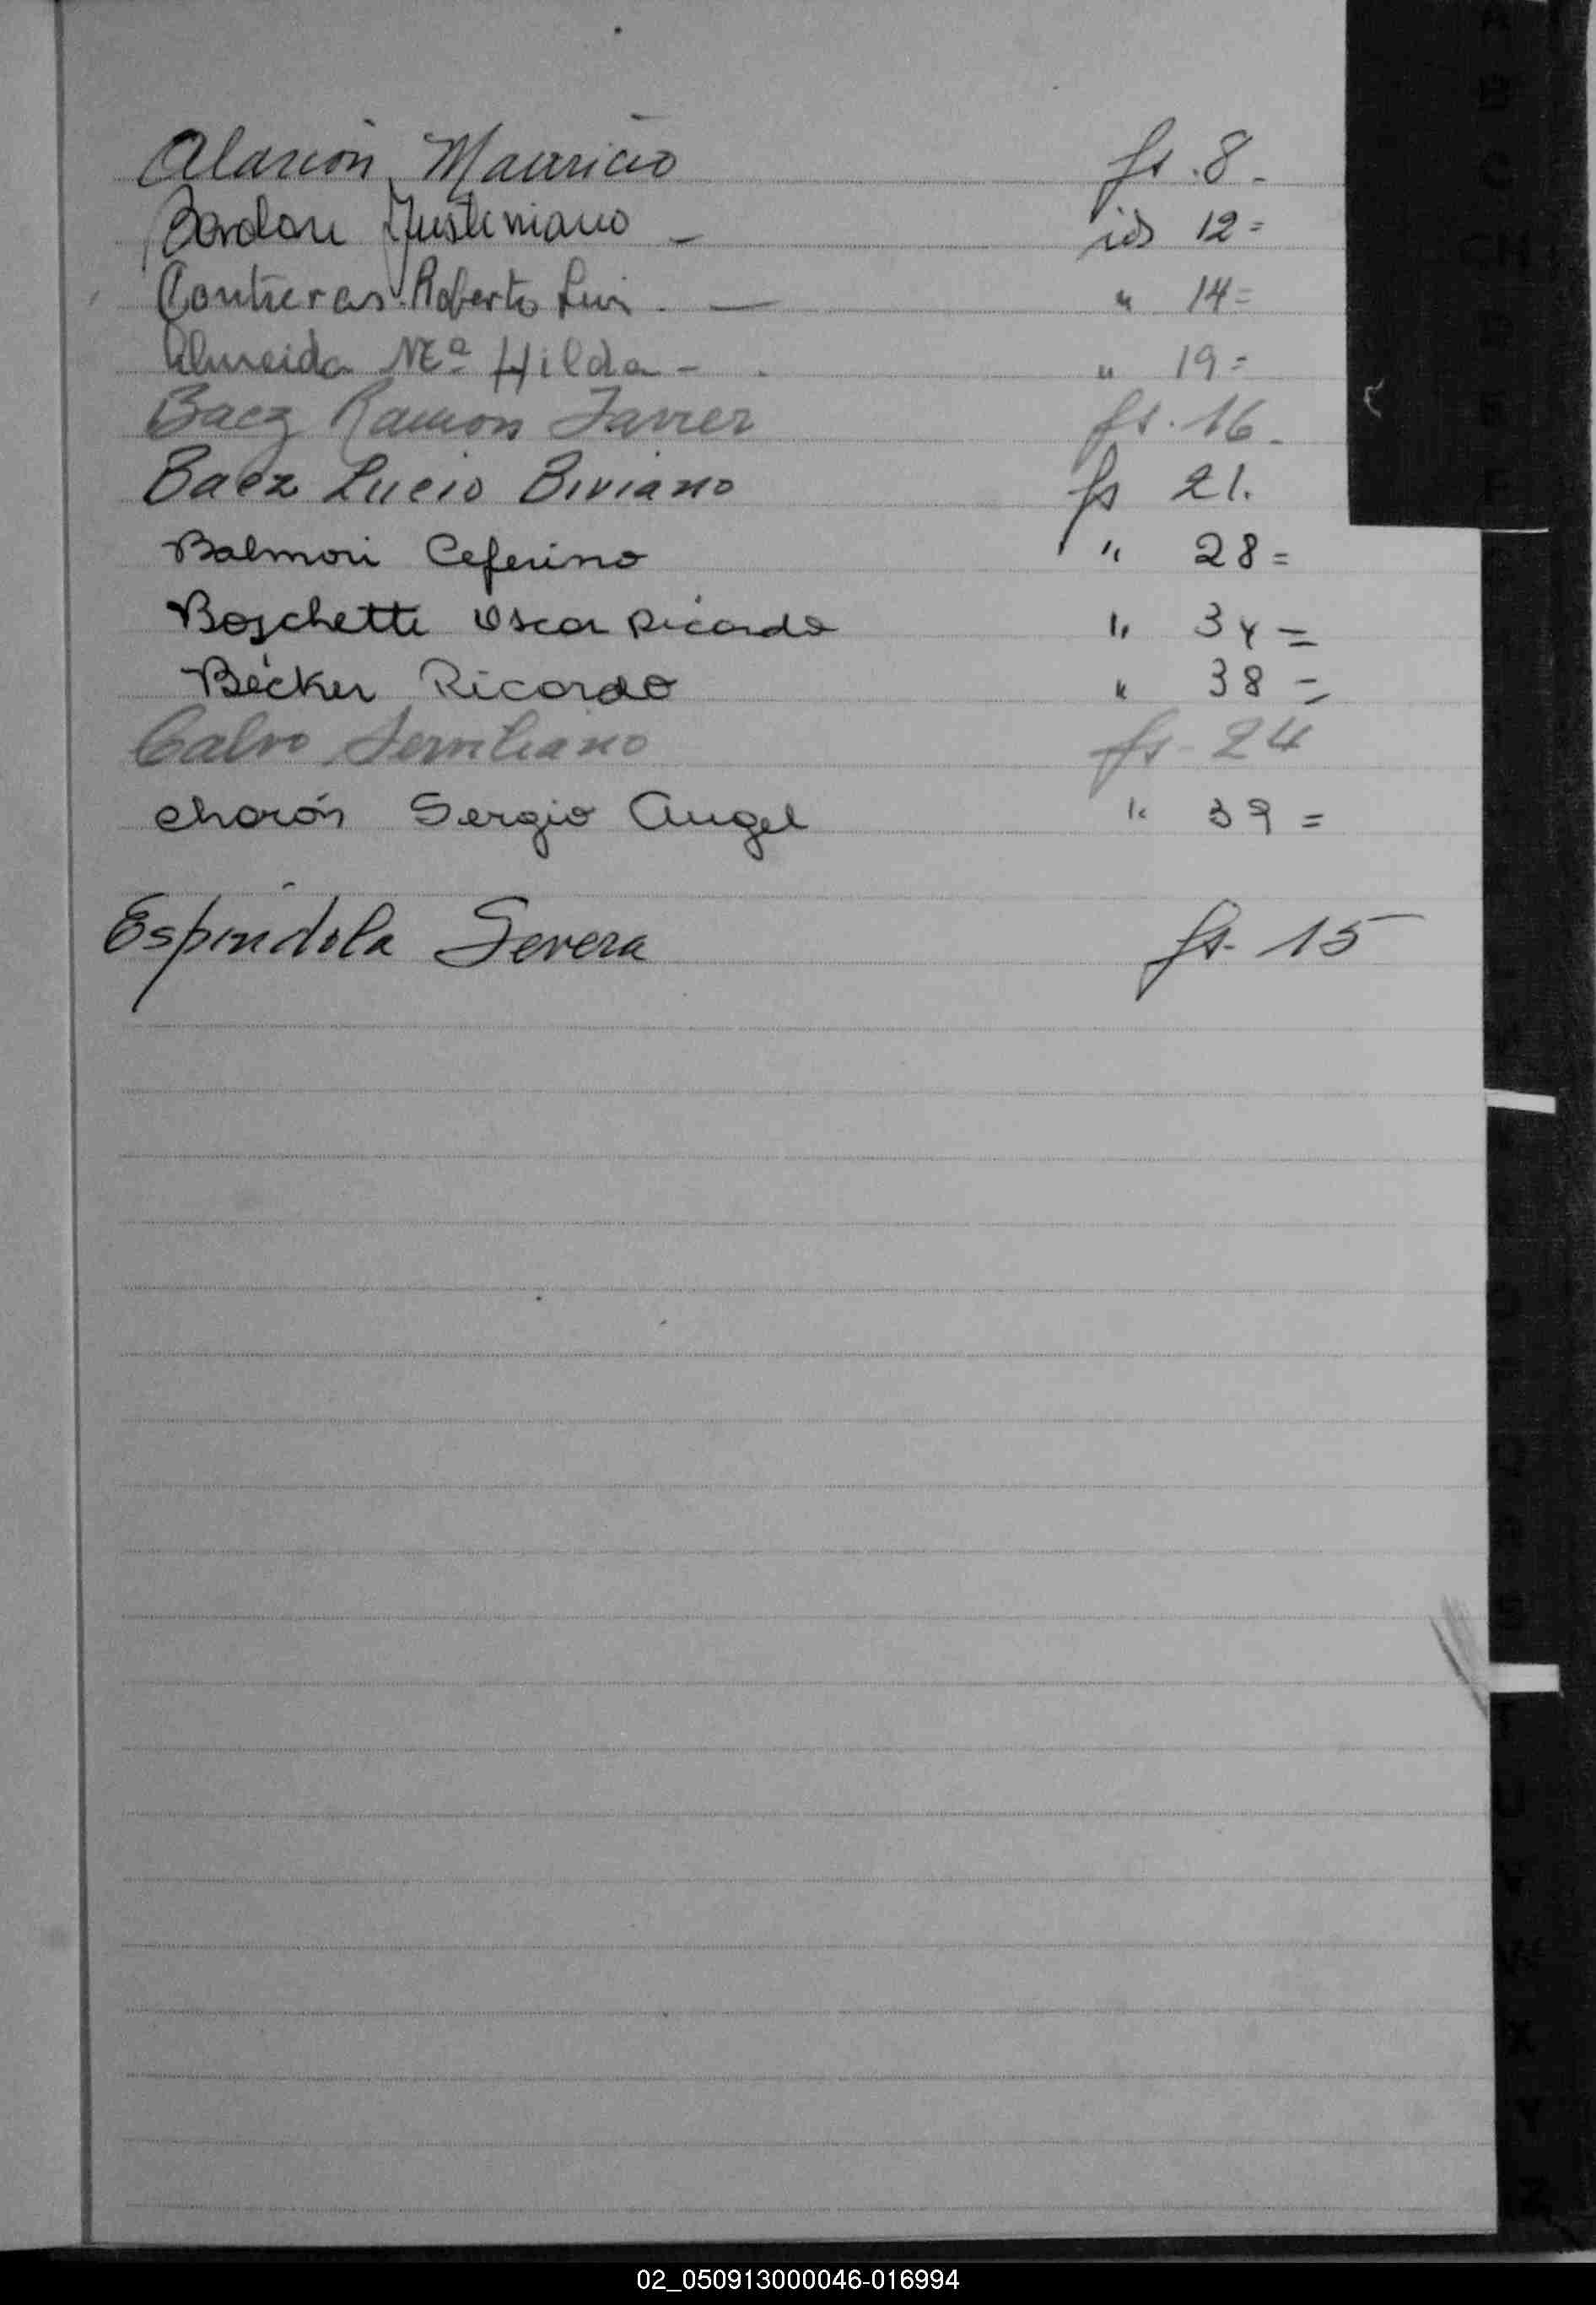 Alarcón Mauricio fs. 8.-
Bordon Justiniano - id 12=
Contreras Roberto Luis. — " 14=
Almeida Mª Hilda - " 19=
Baez Ramon Javier fs. 16.
Baez Lucio Biviano fs 21.
Balmori Ceferino " 28=
Boschetti Oscar Ricardo " 34=
Becker Ricardo " 38=
Calvo fs. 24
Charón Sergio Angel " 39=
Espíndola Severa fs. 15
02_050913000046-016994